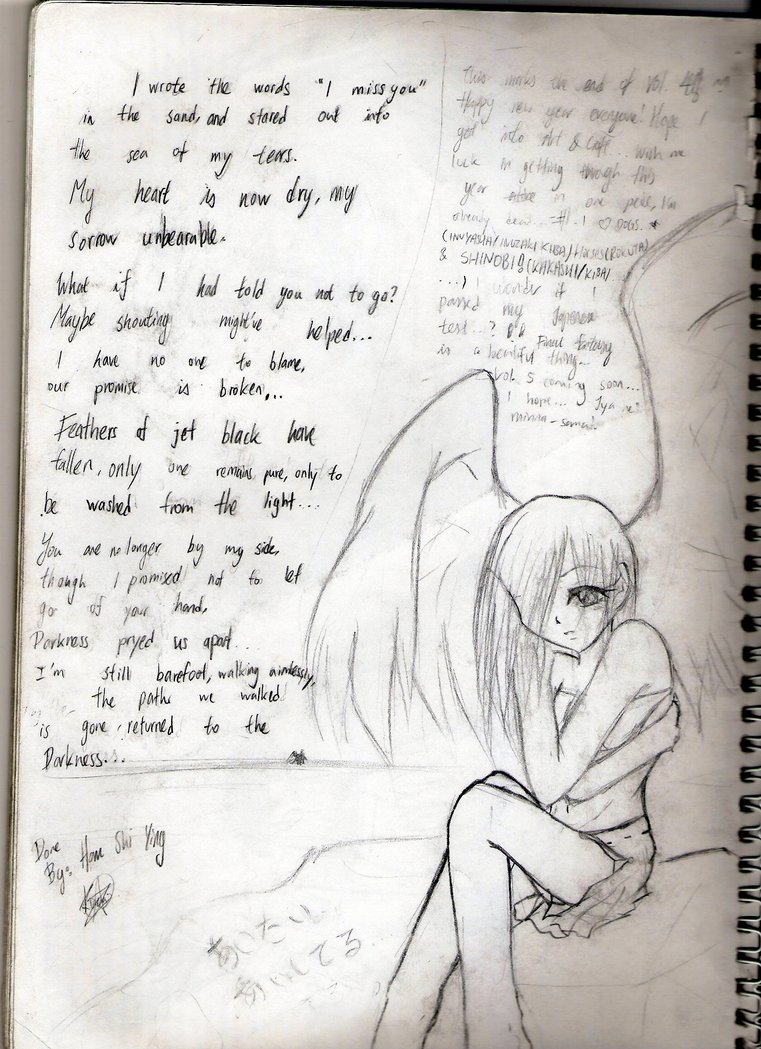 I wrote the words "I miss you"
in the sand, and stared out into
the sea of my tears.
My heart is now dry, my
sorrow unbearable.
What if I had told you not to go?
Maybe shouting might've helped...
I have no one to blame,
our promise is broken...
Feathers of jet black have
fallen, only one remains pure, only to
be washed from the light....
You are no longer by my side,
though I promised not to let
go of your hand,
Darkness pryed us apart...
I'm still barefoot, walking aimlessly,
the paths we walked
is gone, returned to the
Darkness...
Done
By: Hom Shi Ying
This marks the end of Vol.
Happy new year everyone! Hope I
get into Art & Cafe... wish me
luck in getting through this
year in one piece, I'm
already dead... I ♡ DOGS.
(INUYASHA/INUZAKI KIBA) HORSES (ROKUTA)
& SHINOBIS (KAKASHI/KIBA/
...) I wonder if I
passed my Japanese
test...? Final Fantasy
is a beautiful thing...
Vol. 5 coming soon...
I hope... Jya ne
minna-sama!
あいたい
あいしてる